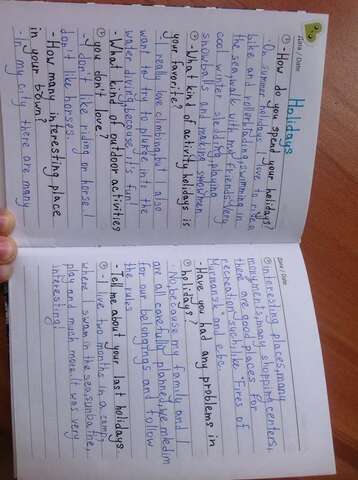 Дата / Date
Holidays
1 - How do you spend your holidays?
- On summer holidays I love to ride a
bike and rollerblading, swimming in
the sea, walk with my friends. Very
cool winter sledding, playing
snowballs and making snowmen.
2 - What kind of activity holidays is
your favorite?
- I really love climbing, but I also
want to try to plunge into the
water diving, because it's fun!
3 - What kind of outdoor activities
you don't love?
- I don't like riding on horse. I
don't like horses.
- How many interesting place
in your town?
- In my city there are many
Дата / Date
interesting places, many
monuments, many shopping centers,
there are good places for
recreation such, like "Fires of
Murmansk" and e.b.c.
- Have you had any problems in
holidays?
- No, because my family and I
are all carefully planned, we
for our belongings and follow
the rules
- Tell me about your last holidays.
- I live two months in a camp,
where I swam in the sea, sunbathe,
play and much more. It was very
interesting!